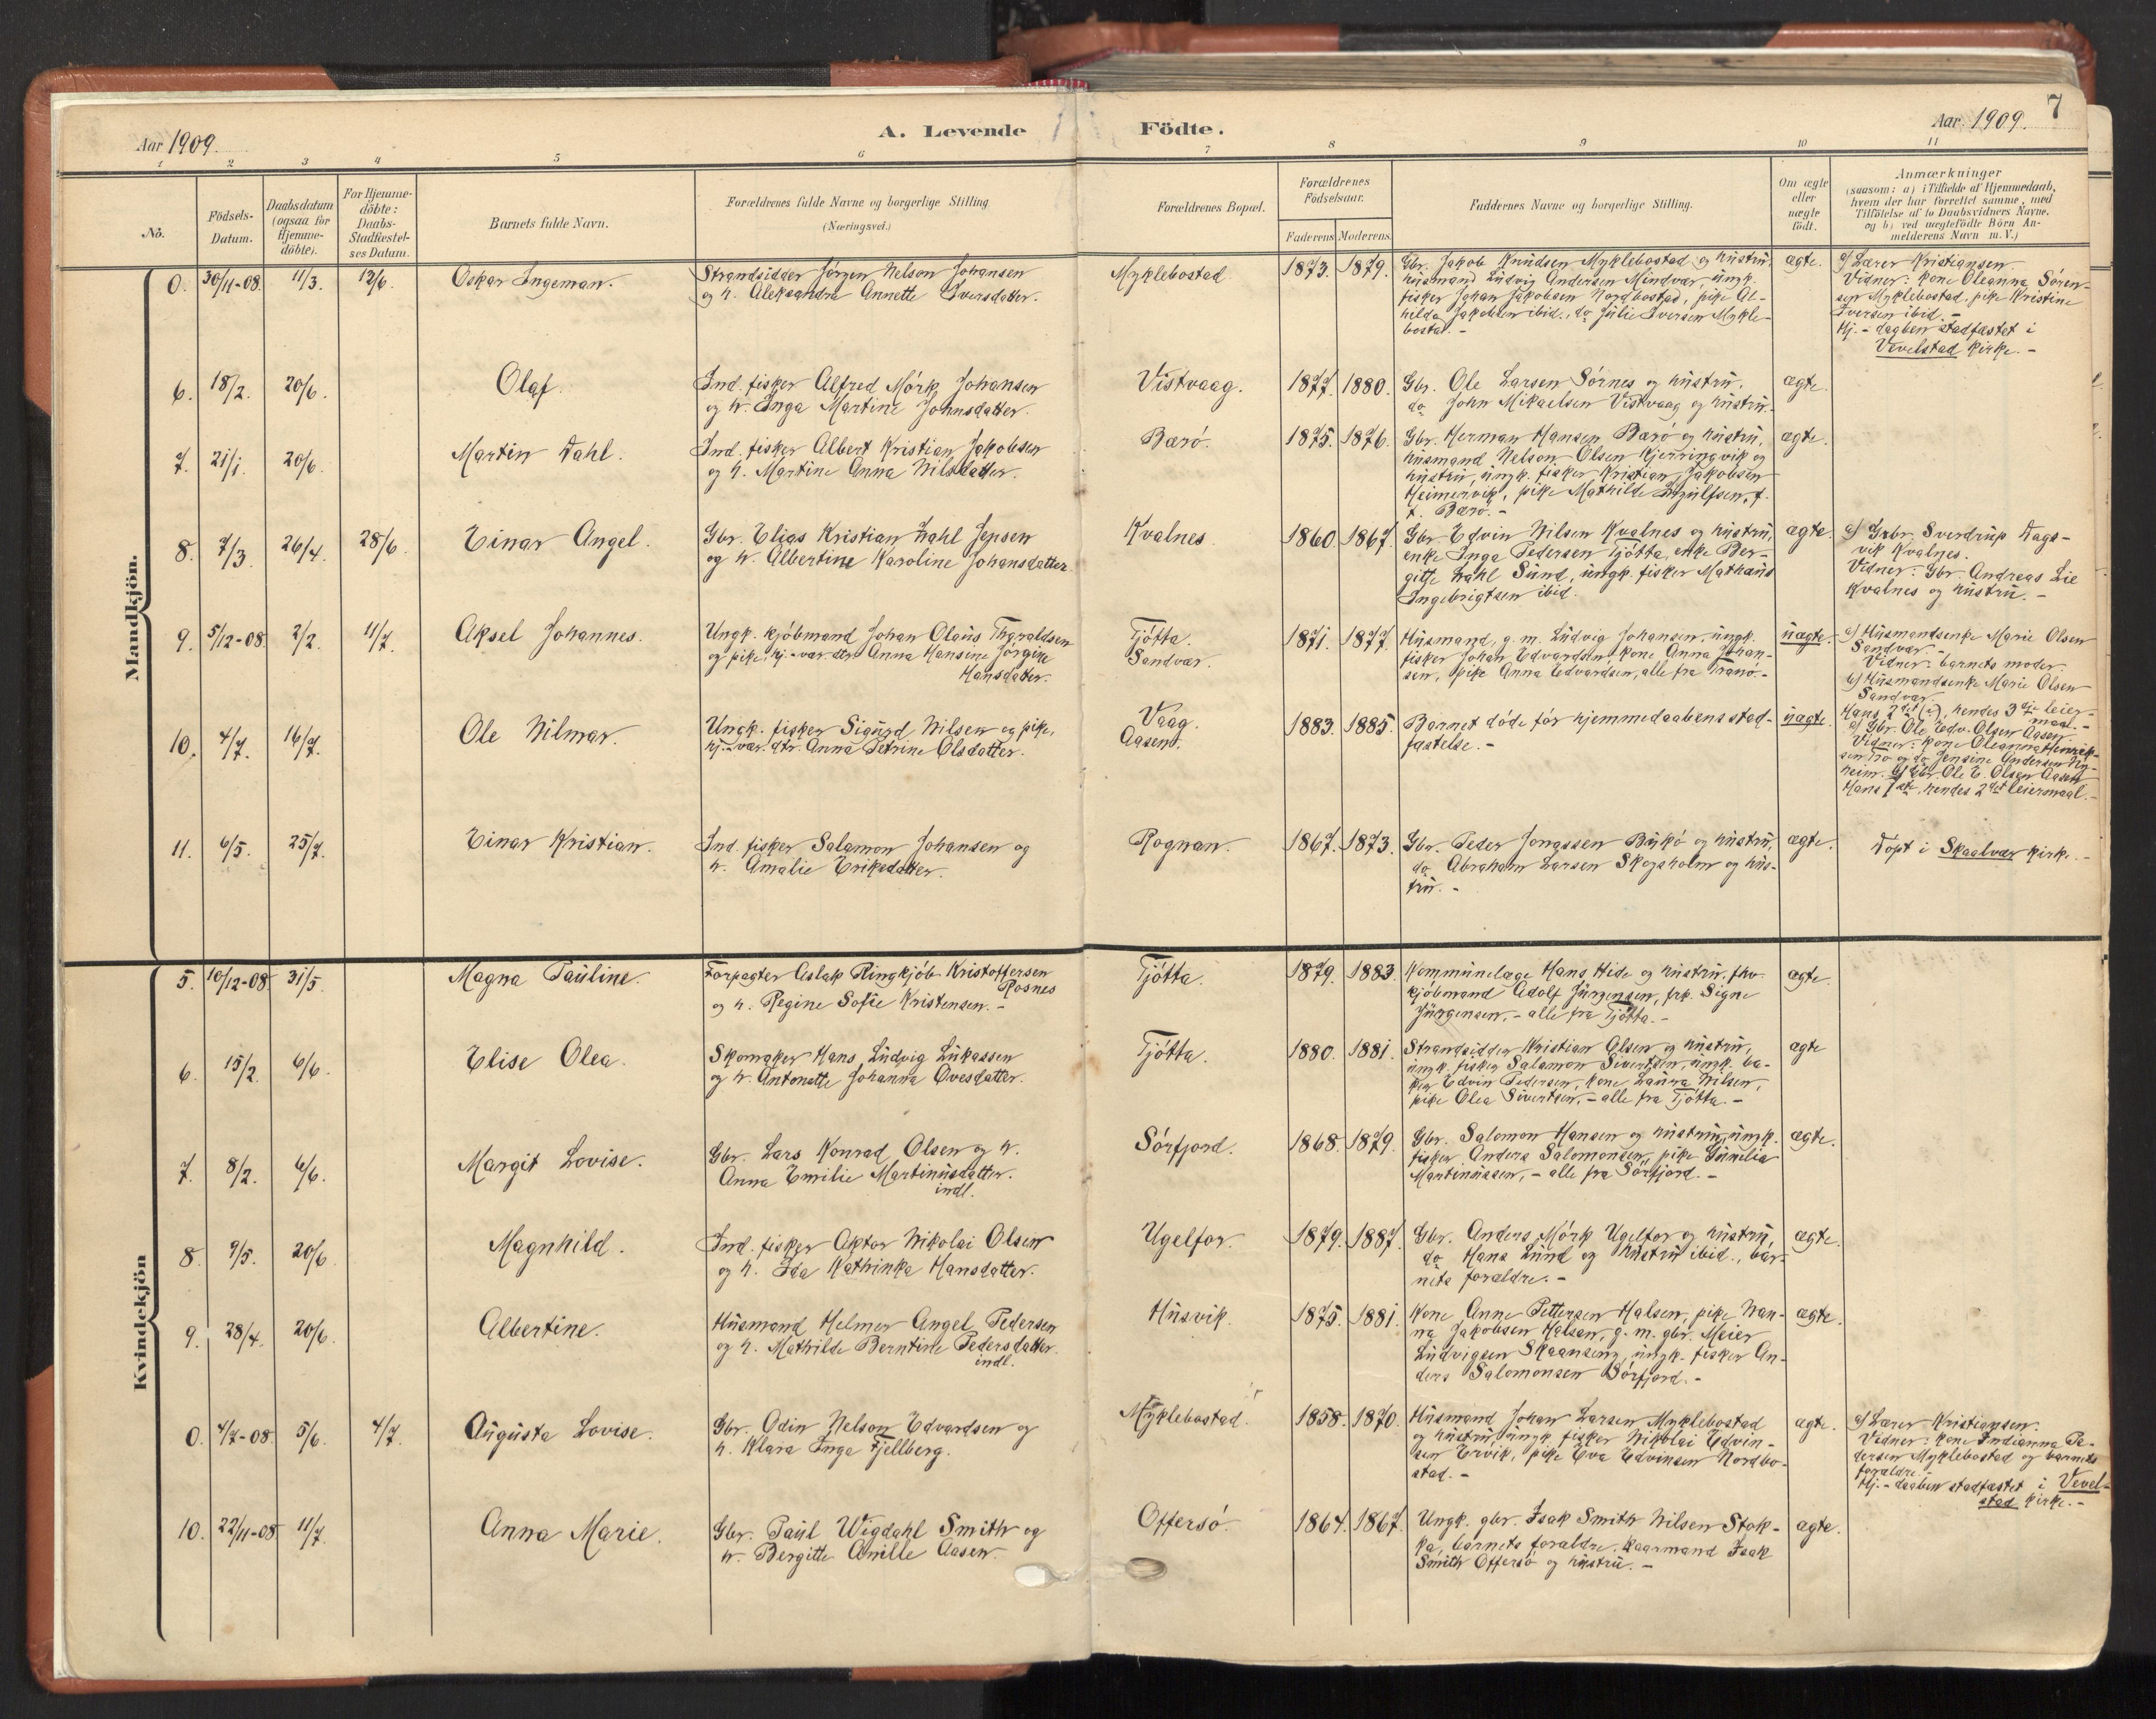 7
Aar 1909.
A. Levende Födte.
Aar 1909.
1 2 3 4 5 6 7 8 9 10 11
No.
Födsels-
Datum.
Daabsdatum
(ogsaa for
Hjemme-
döbte).
For Hjemme-
döbte:
Daabs-
Stadfæstel-
ses Datum.
Barnets fulde Navn.
Forældrenes fulde Navne og borgerlige Stilling
(Næringsvei.)
Forældrenes Bopæl.
Forældrenes
Födselsaar.
Faderens Moderens
Faddernes Navne og borgerlige Stilling.
Om ægte
eller
uægte
födt.
Anmærkninger
(saasom: a) i Tilfælde af Hjemmedaab,
hvem der har forrettet samme, med
Tilföielse af to Daabsvidners Navne.
og b) ved uægtefödte Börn An-
melderens Navn m. V.)
Mandkjön.
0. 30/11-08. 11/3. 13/6. Oskar Ingeman.
Strandsidder Jörgen Nelson Johansen
og h. Aleksandra Annette Iversdatter.
Myklebostad 1873. 1879.
Gbr. Jakob Knudsen Myklebostad og hustru,
husmand Ludvig Andersen Mindvær, ungk.
fisker Johan Jakobsen Nordbostad, pike Al-
hilda Jakobsen ibid., do Julie Iversen Mykle-
bostad. -
ægte.
a) Lærer Kristiansen.
Vidner: kone Oleanna Sören-
sen Myklebostad, pike Kristine
Iversen ibid. -
Hj.-daaben stadfæstet i
Vevelstad kirke. -
6. 18/2. 20/6. Olaf.
Ind. fisker Alfred Mörk Johansen
og h. Inga Martine Johnsdatter.
Vistvaag. 1877. 1880.
Gbr. Ole Larsen Sörnes og hustru,
do John Mikaelsen Vistvaag og hustru.
ægte.
7. 21/1. 20/6. Martin Dahl.
Ind. fisker Albert Kristian Jakobsen
og h. Martine Anna Nilsdatter.
Bærö. 1875. 1876.
Gbr. Herman Hansen Bærö og hustru,
husmand Nelson Olsen Kjerringvik og
hustru, ungk. fisker Kristian Jakobsen
Heimervik, pike Mathilde Ingulfsen, f.
t. Bærö. -
ægte.
8. 7/3. 26/4. 28/6. Einar Angel.
Gbr. Elias Kristian Zahl Jepsen
og h. Albertine Karoline Johansdatter.
Kvalnes. 1860. 1867.
Gbr. Edvin Nilsen Kvalnes og hustru,
enke Inga Pedersen Tjötta, enke Ber-
gitte Zahl Sund, ungk. fisker Mathæus
Ingebrigtsen ibid.
ægte.
a) Gbr. Sverdrup Dags-
vik Kvalnes.
Vidner: Gbr. Andreas Lie
Kvalnes og hustru. -
9. 5/12-08. 2/2. 11/7. Aksel Johannes.
Ungk. kjöbmand Johan Olaus Thoraldsen
og pike, hj.-vær. dtr. Anna Hansine Jörgine
Hansdatter.
Tjötta.
Sandvær.
1871. 1877.
Husmand, g. m. Ludvig Johansen, ungk.
fisker Johan Edvardsen, kone Anna Johan-
sen, pike Anna Edvardsen, alle fra Tranö. -
uægte.
a) Husmandsenke Marie Olsen
Sandvær. -
Vidner: barnets moder.
b) Husmandsenke Marie Olsen
Sandvær.
Hans 2det (?), hendes 3die leier-
maal. -
10. 4/7. 16/7. Ole Hilmar.
Ungk. fisker Sigurd Nilsen og pike,
hj.-vær. dtr. Anna Petrine Olsdatter.
Vaag.
Aasen.
1883. 1885.
Barnet döde för hjemmedaabens stad-
fæstelse. -
uægte.
a) Gbr. Ole Edv. Olsen Aasen.
Vidner: kone Oleanna Henrik-
sen Tro og do Jensine Andersen
heim. b) Gbr. Ole E. Olsen Aasen
Hans 1ste, hendes 2det leiermaal. -
11. 6/5. 25/7. Einar Kristian.
Ind. fisker Salamon Johansen og
h. Amalie Eriksdatter.
Rognan. 1867. 1873.
Gbr. Peder Jonassen Bukkö og hustru,
do Abraham Larsen Skogsholm og hus-
tru. -
ægte.
Döpt i Skaalvær kirke. -
Kvindekjön
5. 10/12-08. 31/5. Magna Pauline.
Forpagter Aslak Ringkjöb Kristoffersen
Rosnes
og h. Regine Sofie Kristensen. -
Tjötta. 1879. 1883.
Kommunelæge Hans Hide og hustru, fhv.
kjöbmand Adolf Jürgensen, frk. Signe
Jürgensen, - alle fra Tjötta. -
ægte.
6. 15/2. 6/6. Elise Olea.
Skomaker Hans Ludvig Lukassen
og h. Antonette Johanna Ovesdatter.
Tjötta. 1880. 1881.
Strandsidder Kristian Olsen og hustru,
ungk. fisker Salamon Sivertsen, ungk. ba-
ker Edvin Pedersen, kone Laura Nilsen,
pike Olea Sivertsen, - alle fra Tjötta. -
ægte
7. 8/2. 6/6. Margit Lovise.
Gbr. Lars Konrad Olsen og h.
Anna Emilie Martinusdatter.
indl.
Sörfjord. 1868. 1879.
Gbr. Salomon Hansen og hustru, ungk.
fisker Anders Salomonsen, pike Gunelia
Martinussen, - alle fra Sörfjord. -
ægte.
8. 9/5. 20/6 Magnhild.
Ind. fisker Aktor Nikolai Olsen
og h. Ida Kathinka Hansdatter.
Ugelfor. 1879. 1887.
Gbr. Anders Mörk Ugelfor og hustru,
do Hans Lund og hustru ibid., bar-
nets forældre. -
ægte.
9. 28/4. 20/6. Albertine.
Husmand Helmer Angel Pedersen
og h. Mathilde Berntine Pedersdatter.
indl.
Husvik. 1875. 1881.
Kone Anne Pettersen Halsen, pike Nan-
na Jakobsen Halsen, g. m. gbr. Meier
Ludvigsen Skaanseng, ungk. fisker An-
ders Salomonsen Sörfjord. -
ægte.
0. 4/7-08. 5/6. 4/7. Augusta Lovise.
Gbr. Odin Nelson Edvardsen og
h. Klara Inga Fjellberg.
Myklebostad. 1858. 1870.
Husmand Johan Larsen Myklebostad
og hustru, ungk. fisker Nikolai Edvin-
sen Ervik, pike Eva Edvinsen Nordbo-
stad. -
ægte.
a) Lærer Kristiansen.
Vidner: kone Indianna Pe-
dersen Myklebostad og barnets
forældre.
Hj.-daaben stadfæstet i Vevel-
stad kirke. -
10. 22/11-08 11/7. Anna Marie.
Gbr. Paul Wigdahl Smith og
h. Bergitte Amille Aasen.
Offersö. 1864. 1867.
Ungk. gbr. Isak Smith Nilsen Stok-
ka, barnets forældre, kaarmand Isak
Smith Offersö og hustru. -
ægte.